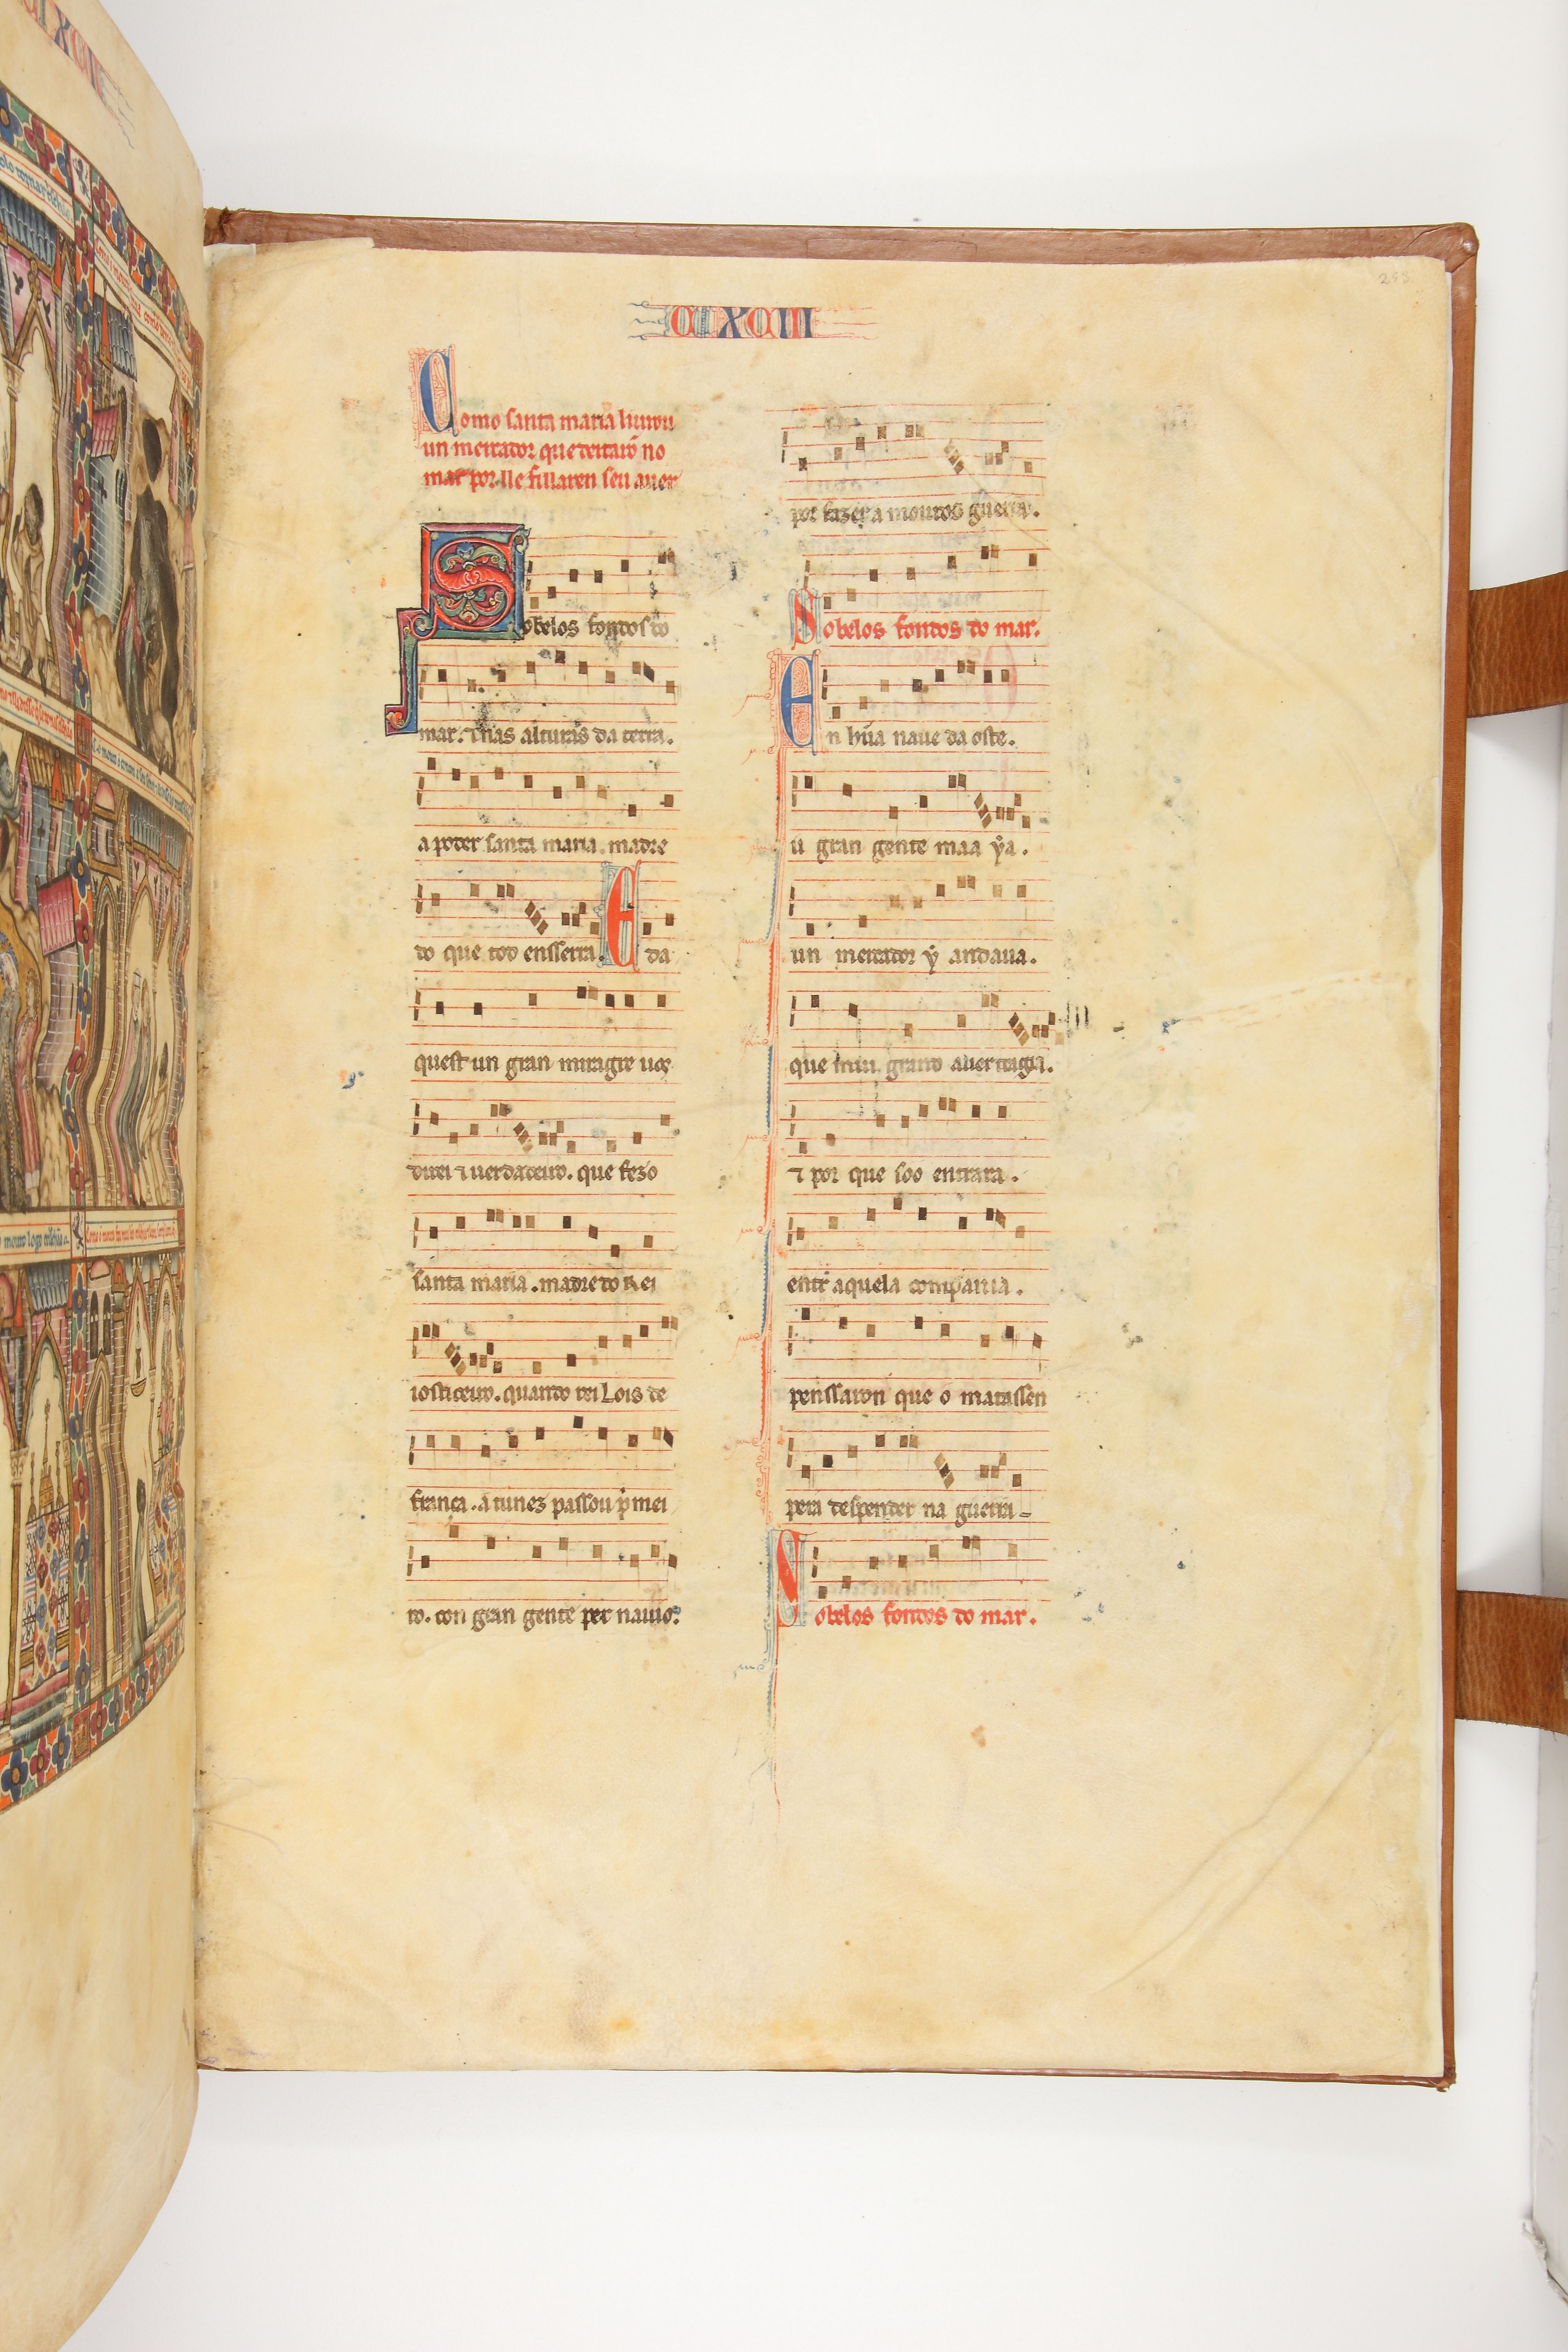 CLXCIII
Como santa maria liurou
un mercator que deitarõ no
mar por lle fillaren seu auer
Sobelos fondos do
mar. ⁊ nas alturas da terra.
a poder santa maria. madre
do que tod enserra. E da
quest un gran miragre uos
direi ⁊ uerdadeiro. que fezo
santa maria. madre do Rei
iostiçeiro. quando rei Lois de
françа. a tunez passou p̃mei
ro. con gran gente per nauio.
por fazer a mouros guerra.
Sobelos fondos do mar.
En hũa naue da oste.
u gran gente maa ẏa.
un mercator ẏ andaua.
que mui grand auer tragia.
⁊ por que soo entrara.
entr aquela compania.
penssaron que o matassen
pera despender na guerra
Sobelos fondos do mar.